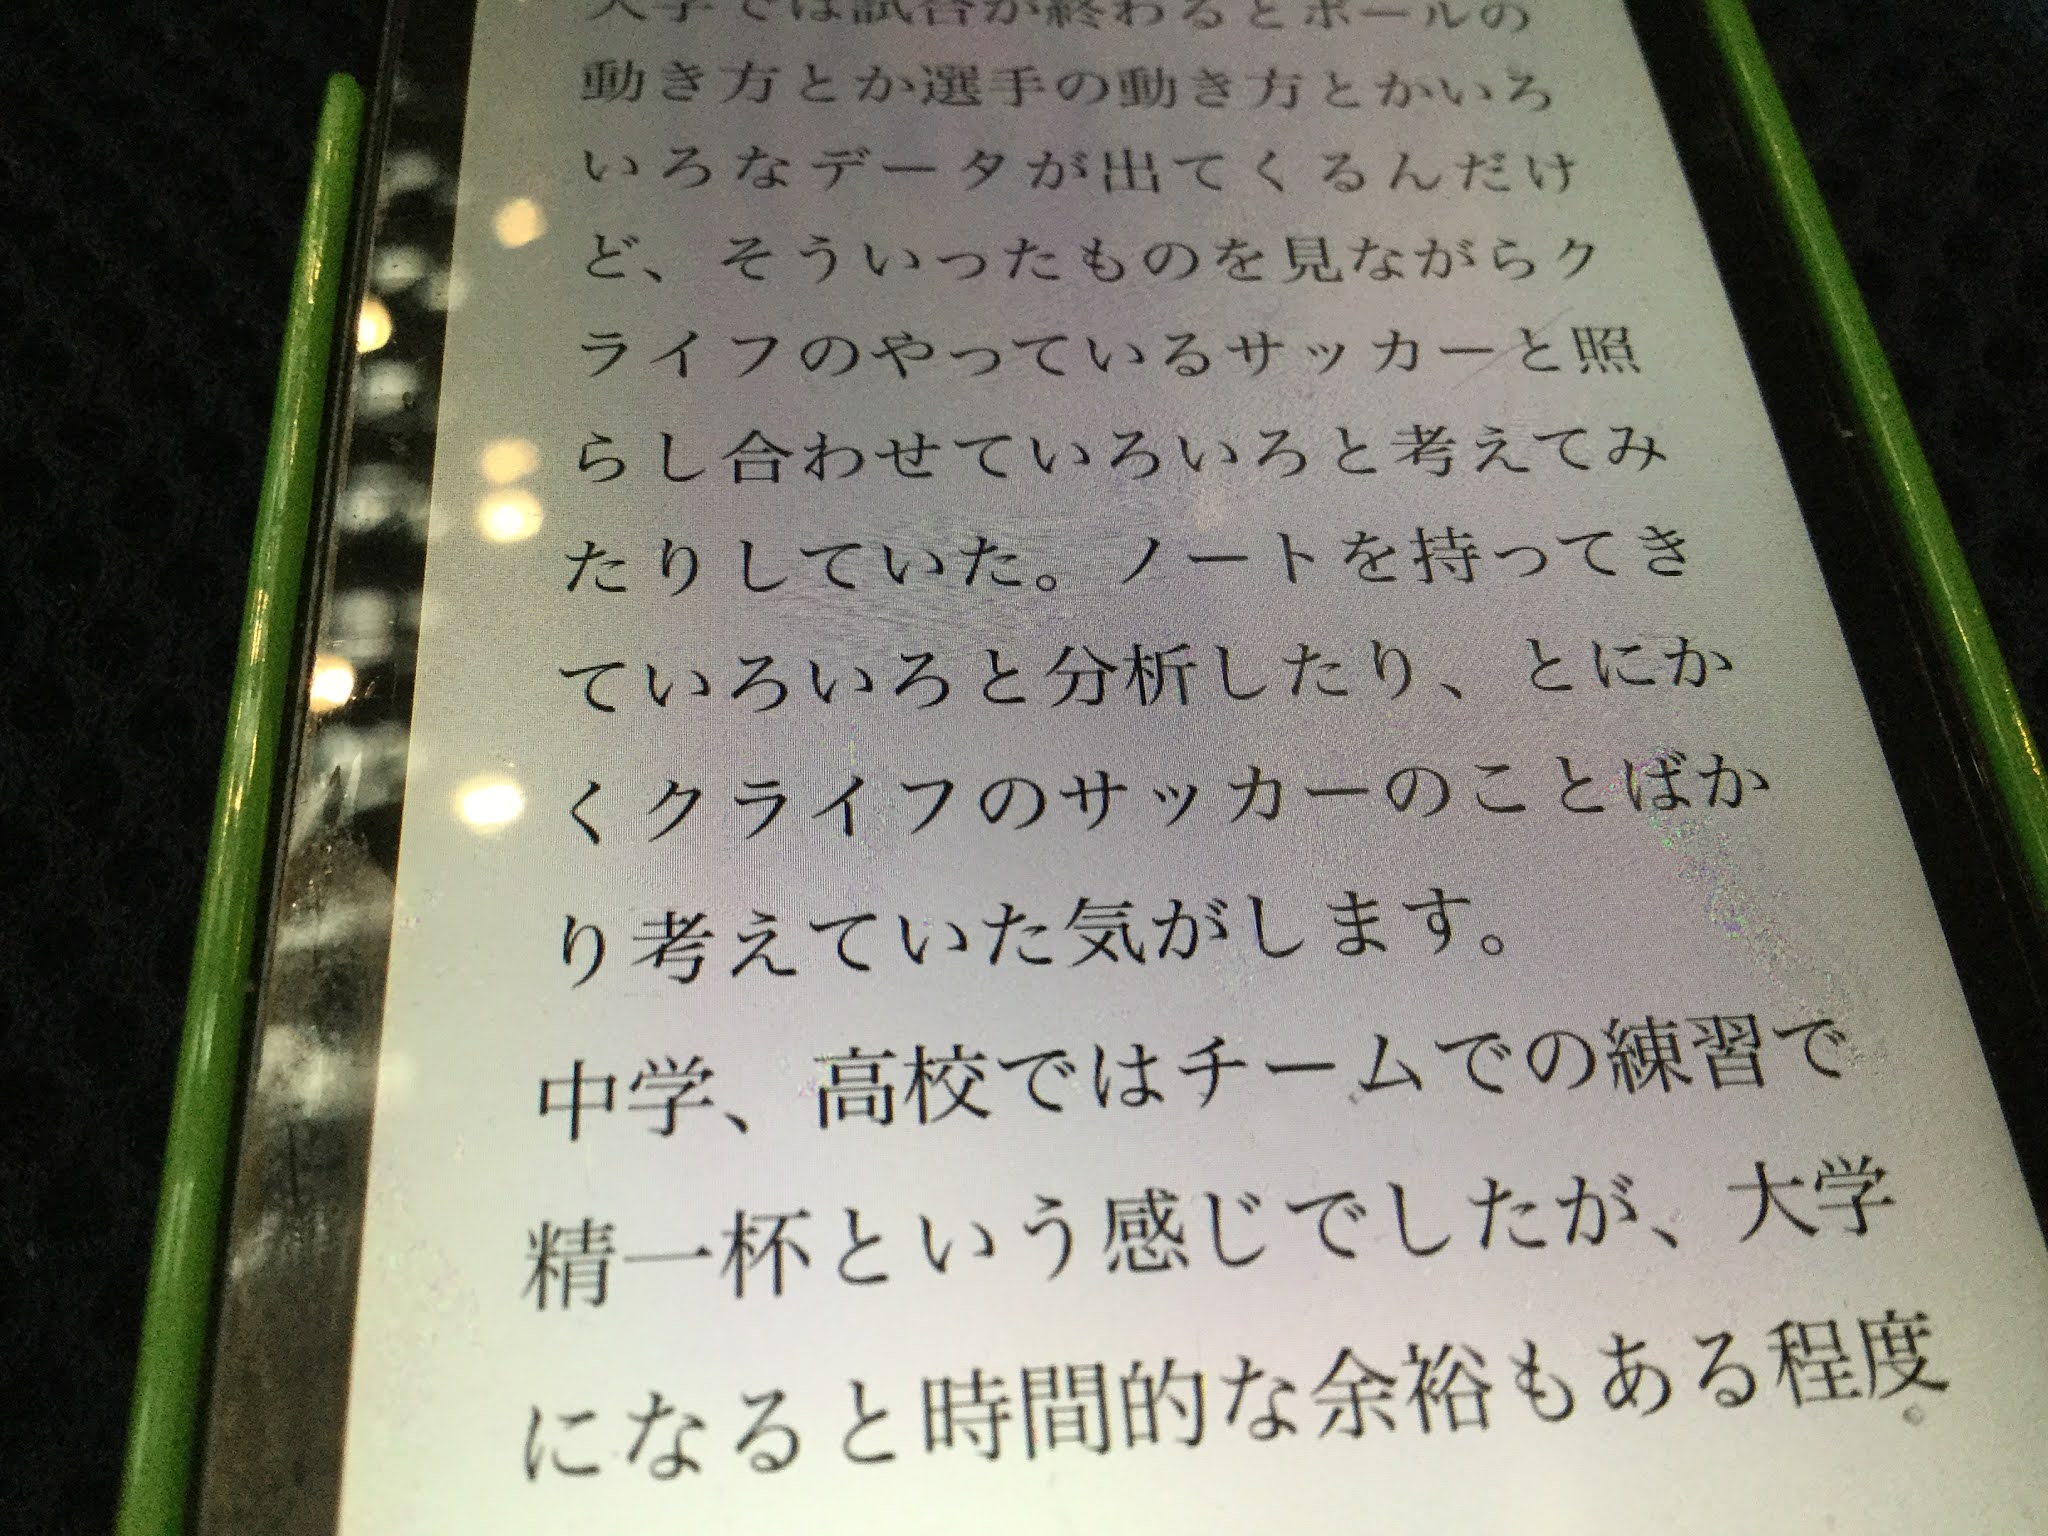 大学では試合が終わるとボールの
動き方とか選手の動き方とかいろ
いろなデータが出てくるんだけ
ど、そういったものを見ながらク
ライフのやっているサッカーと照
らし合わせていろいろと考えてみ
たりしていた。ノートを持ってき
ていろいろと分析したり、とにか
くクライフのサッカーのことばか
り考えていた気がします。
中学、高校ではチームでの練習で
精一杯という感じでしたが、大学
になると時間的な余裕もある程度